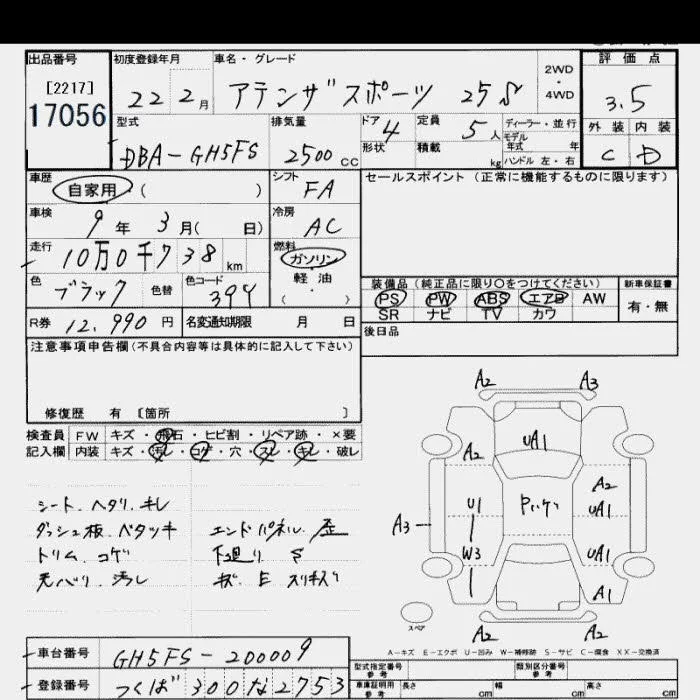 出品番号 初度登録年月 車名・グレード 2WD・4WD 評価点
[2217]
17056
22 2月 アテンザスポーツ 25S 3.5
型式 排気量 ドア 4 形状 定員 5人 積載 kg ディーラー・並行 モデル年式 年 ハンドル 左・右 外装 内装
DBA-GH5FS 2500cc C D
車歴 自家用 ( ) シフト FA セールスポイント (正常に機能するものに限ります)
車検 9年 3月( 日) 冷房 AC
走行 10万0千738km 燃料 ガソリン 軽・油 ( )
色 ブラック 色替 色コード 394
装備品 (純正品に限り〇をつけてください) 新車保証書
PS PW ABS エアB AW 有・無
SR ナビ TV カワ
R券 12,990円 名変通知期限 月 日 後日品
注意事項申告欄(不具合内容等は具体的に記入して下さい)
修復歴 有 〔箇所 〕
検査員 FW キズ・飛石・ヒビ割・リペア跡・×要
記入欄 内装 キズ・汚レ・コゲ・穴・スレ・キレ・破レ
シート、ヘタリ、キレ
ダッシュ板、ベタツキ エンドパネル、歪
トリム、コゲ 下廻り S
天バリ、汚レ キズ、E スリキズ
A2 A3
UA1
A2 A2
U1 Pいケ UA1
A3
W3 UA1
A1
スペア
A2 A2
A-キズ E-エクボ U-凹み W-補修跡 S-サビ C-腐食 XX-交換済
車台番号 GH5FS-200009 型式指定番号 参考 類別区分番号 参考
登録番号 つくば 300 な 2753 車庫証明用 参考 長さ cm 幅 cm 高さ cm